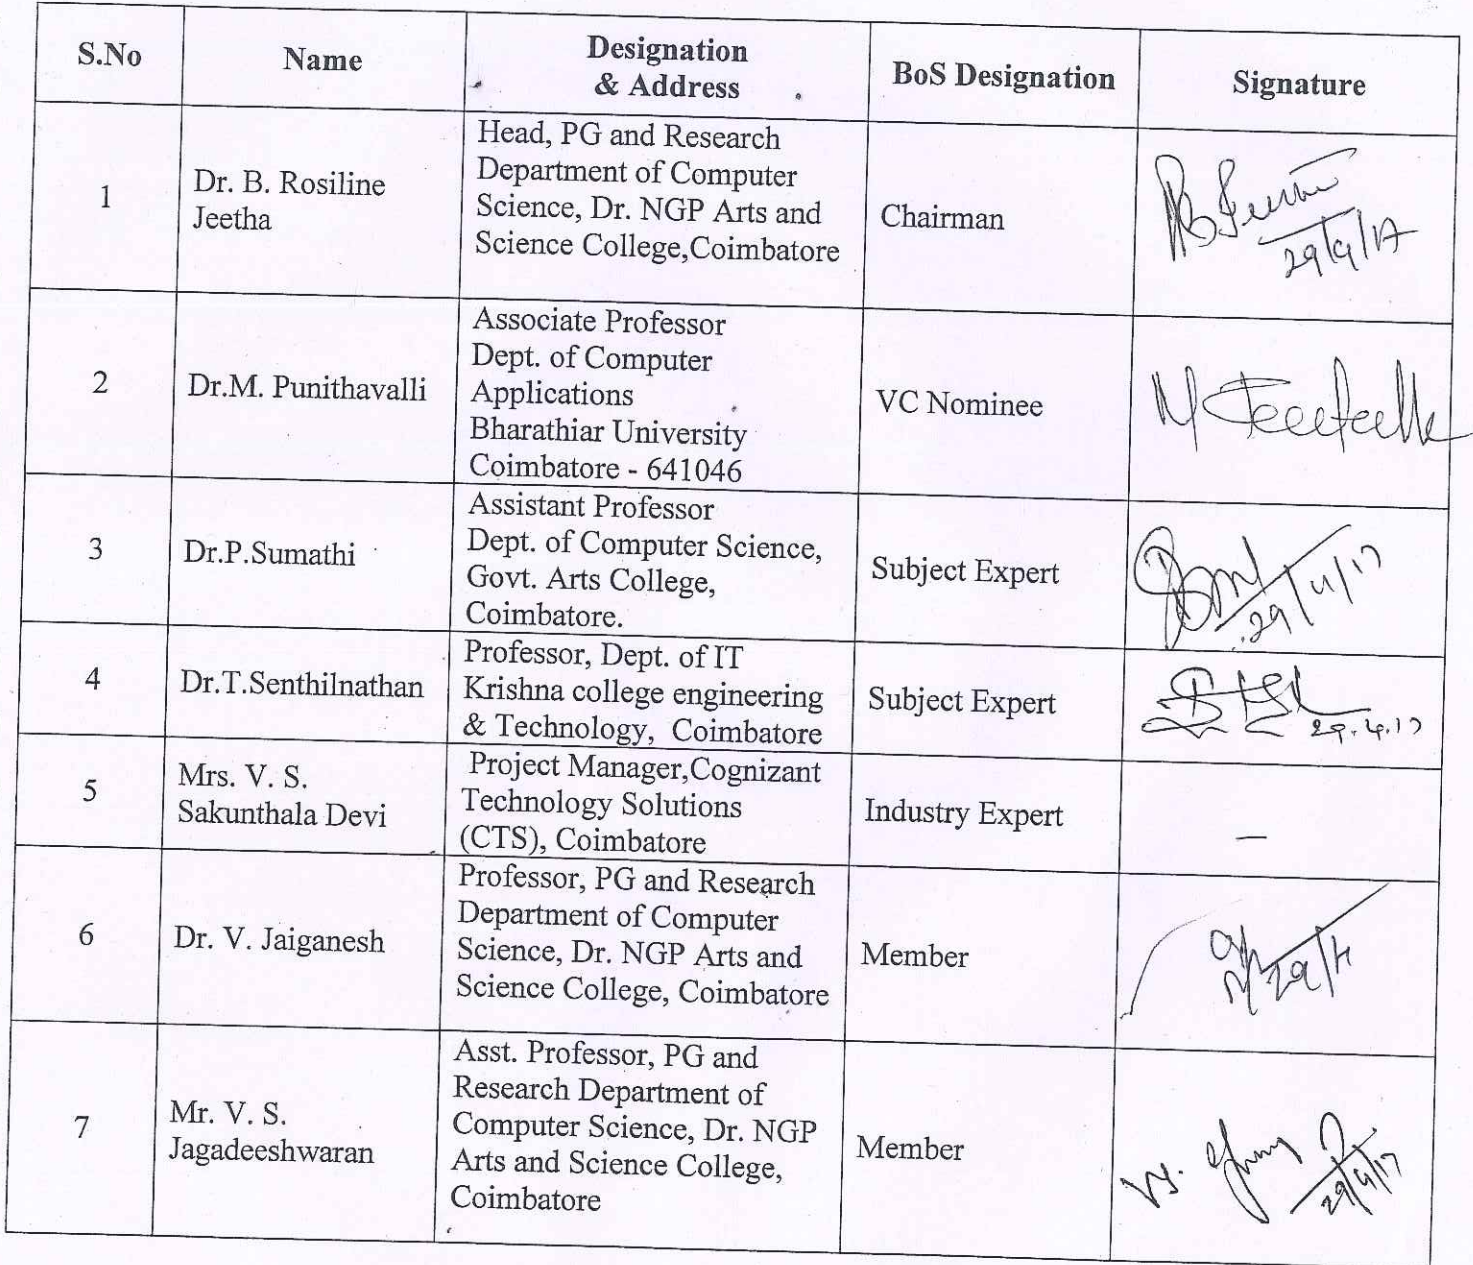 S.No
Name
Designation
& Address
BoS Designation
Signature
1
Dr. B. Rosiline
Jeetha
Head, PG and Research
Department of Computer
Science, Dr. NGP Arts and
Science College,Coimbatore
Chairman
29/4/17
2
Dr.M. Punithavalli
Associate Professor
Dept. of Computer
Applications
Bharathiar University
Coimbatore - 641046
VC Nominee
3
Dr.P.Sumathi
Assistant Professor
Dept. of Computer Science,
Govt. Arts College,
Coimbatore.
Subject Expert
29/4/17
4
Dr.T.Senthilnathan
Professor, Dept. of IT
Krishna college engineering
& Technology, Coimbatore
Subject Expert
29.4.17
5
Mrs. V. S.
Sakunthala Devi
Project Manager,Cognizant
Technology Solutions
(CTS), Coimbatore
Industry Expert
—
6
Dr. V. Jaiganesh
Professor, PG and Research
Department of Computer
Science, Dr. NGP Arts and
Science College, Coimbatore
Member
29/4
7
Mr. V. S.
Jagadeeshwaran
Asst. Professor, PG and
Research Department of
Computer Science, Dr. NGP
Arts and Science College,
Coimbatore
Member
29/4/17